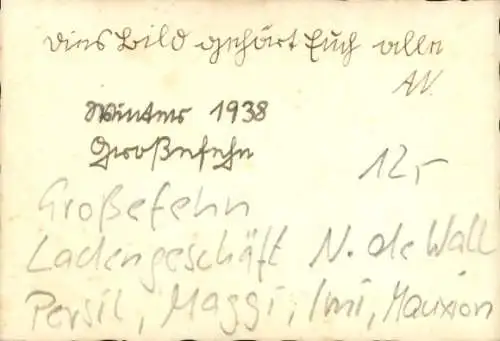 Dies Bild gehört Euch alle
AV.
Winter 1938
Großefehn
12,-
Großefehn
Ladengeschäft N. de Wall
Persil, Maggi, Imi, Mauxion